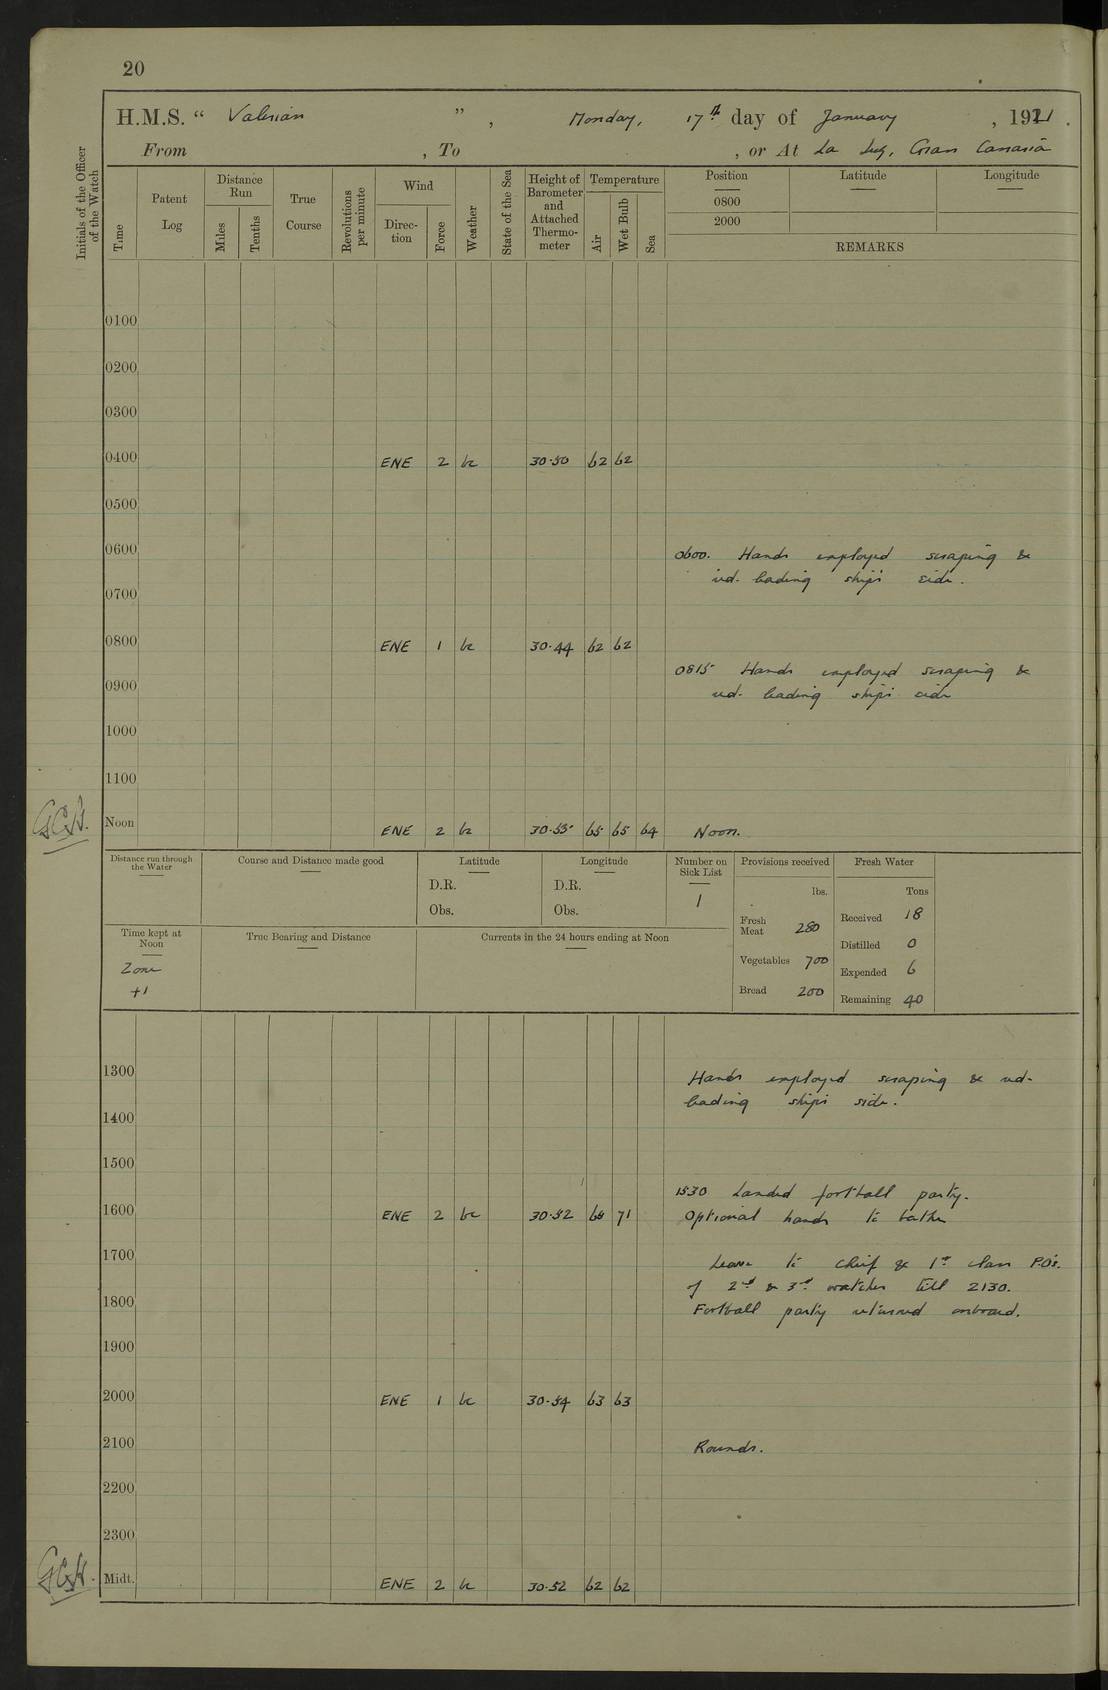 20
H.M.S. “ Valerian ”, Monday, 17th day of January, 1921.
From , To , or At La Luz, Gran Canaria
Initials of the Officer of the Watch
Time
Patent Log
Distance Run
Miles
Tenths
True Course
Revolutions per minute
Wind
Direc-tion
Force
Weather
State of the Sea
Height of Barometer and Attached Thermo-meter
Temperature
Air
Wet Bulb
Sea
Position
Latitude
Longitude
0800
2000
REMARKS
0100
0200
0300
0400 ENE 2 bc 30.50 62 62
0500
0600 0600. Hands employed scraping &
red-leading ship's side.
0700
0800 ENE 1 bc 30.44 62 62
0815 Hands employed scraping &
0900 red-leading ship's side
1000
1100
Noon ENE 2 bc 30.55 65 65 64 Noon.
Distance run through the Water
Course and Distance made good
Latitude
D.R.
Obs.
Longitude
D.R.
Obs.
Number on Sick List
1
Provisions received
lbs.
Fresh Meat 280
Vegetables 700
Bread 200
Fresh Water
Tons
Received 18
Distilled 0
Expended 6
Remaining 40
Time kept at Noon
Zone
+1
True Bearing and Distance
Currents in the 24 hours ending at Noon
1300 Hands employed scraping & red-
leading ship's side.
1400
1500
1530 Landed football party.
1600 ENE 2 bc 30.52 71 Optional hands to bathe
1700 Leave to chief & 1st class P.O's.
of 2nd & 3rd watches till 2130.
1800 Football party returned onboard.
1900
2000 ENE 1 bc 30.54 63 63
2100 Rounds.
2200
2300
Midt. ENE 2 bc 30.52 62 62